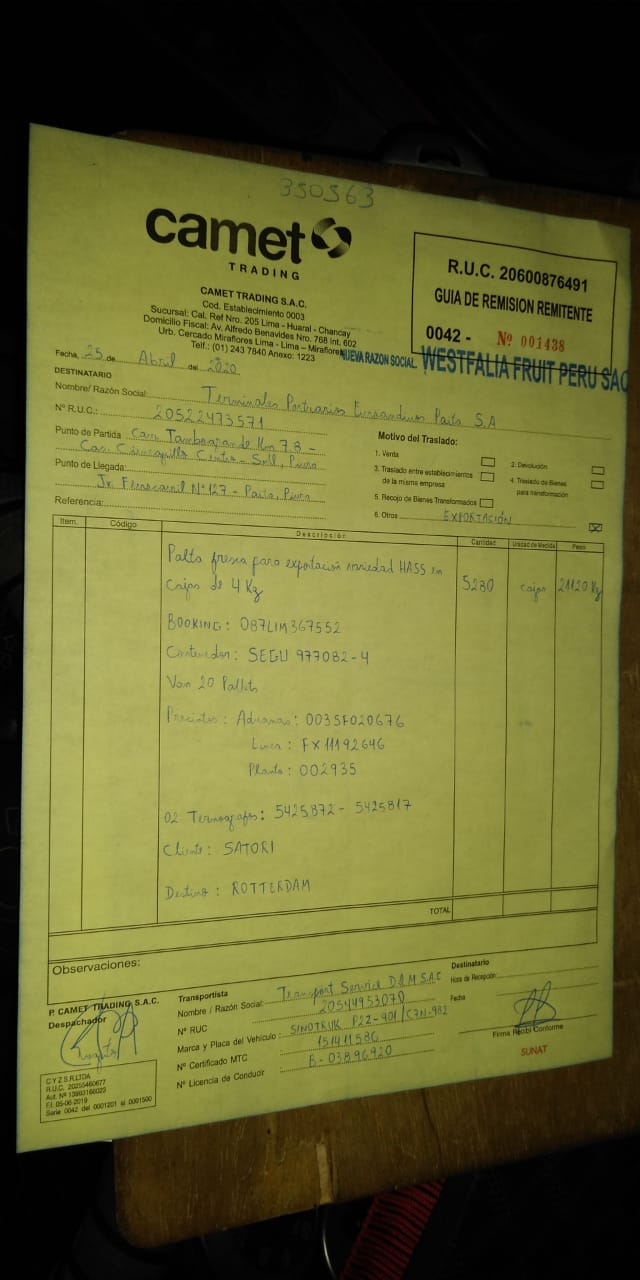 350563
camet
TRADING
R.U.C. 20600876491
GUIA DE REMISION REMITENTE
0042 - Nº 001438
CAMET TRADING S.A.C.
Cod. Establecimiento 0003
Sucursal: Cal. Ref Nro. 205 Lima - Huaral - Chancay
Domicilio Fiscal: Av. Alfredo Benavides Nro. 768 Int. 602
Urb. Cercado Miraflores Lima - Lima – Miraflores
Telf.: (01) 243 7840 Anexo: 1223
NUEVA RAZON SOCIAL. WESTFALIA FRUIT PERU SAC
Fecha, 25 de Abril del 2020
DESTINATARIO
Nombre/ Razón Social: Terminales Portuarios Euroandinos Paita S.A
Nº R.U.C.: 20522473571
Punto de Partida Carr. Tambogrande Km 7.8 -
Cas. Centro - Piura
Punto de Llegada:
Jr. Ferrocarril Nº 127 - Paita, Piura
Referencia:
Motivo del Traslado:
1. Venta
2. Devolución
3. Traslado entre establecimientos
de la misma empresa
4. Traslado de Bienes
para transformación
5. Recojo de Bienes Transformados
6. Otros EXPORTACIÓN
Item. Código Descripción Cantidad Unidad de Medida Peso
Palta fresca para exportación variedad HASS en
cajas de 4 Kg 5280 cajas 21120 Kg
BOOKING: 087LIM367552
Contenedor: SEGU 977082-4
Van 20 Pallets
Precintos: Aduanas: 0035F020676
Linea: FX11192646
Planta: 002935
02 Termografos: 5425872 - 5425817
Cliente: SATORI
Destino: ROTTERDAM
TOTAL
Observaciones:
P. CAMET TRADING S.A.C.
Despachador
Transportista
Nombre / Razón Social: Transport Service D&M S.A.C
Nº RUC 20544953070
Marca y Placa del Vehículo: SINOTRUK P2Z-901 / C7N-982
Nº Certificado MTC 151411586
Nº Licencia de Conducir B-03896920
Destinatario
Hora de Recepción:
Fecha
Firma Recibí Conforme
SUNAT
C Y Z S.R.LTDA
R.U.C. 20255460677
Aut. Nº 13963168023
F.I. 05-06-2019
Serie 0042 del 0001201 al 0001500